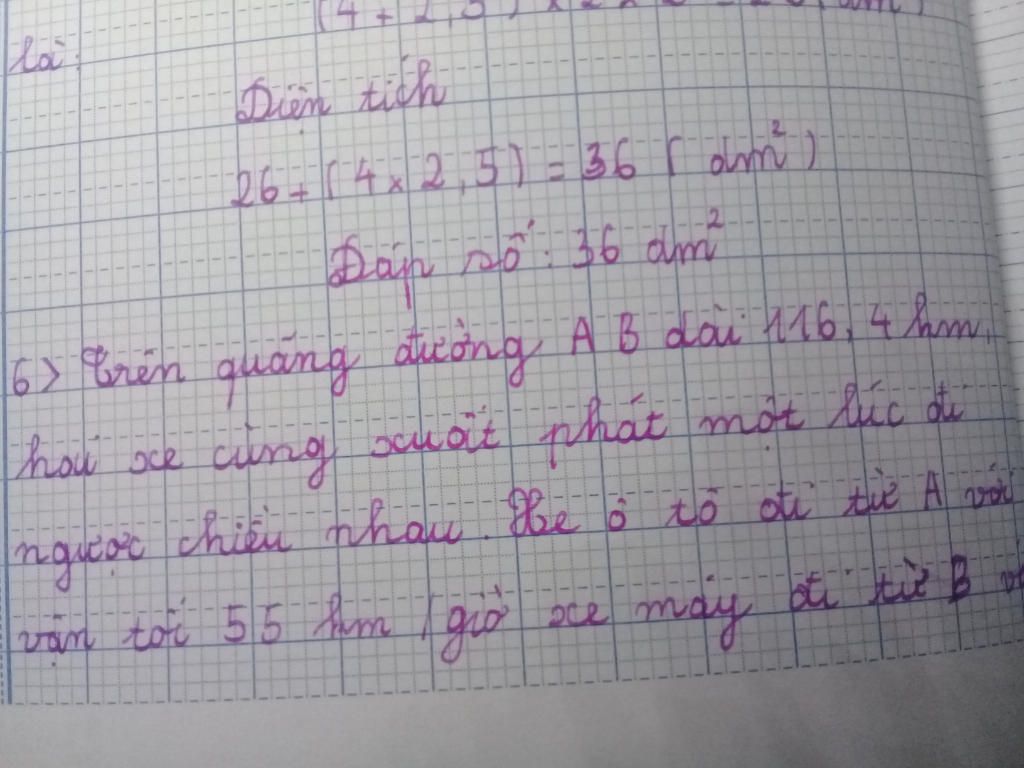 là:
Diện tích
26 + (4 x 2,5) = 36 (dm²)
Đáp số: 36 dm²
6) Trên quãng đường AB dài 116,4 km,
hai xe cùng xuất phát một lúc đi
ngược chiều nhau. Xe ô tô đi từ A với
vận tốc 55 km/giờ xe máy đi từ B